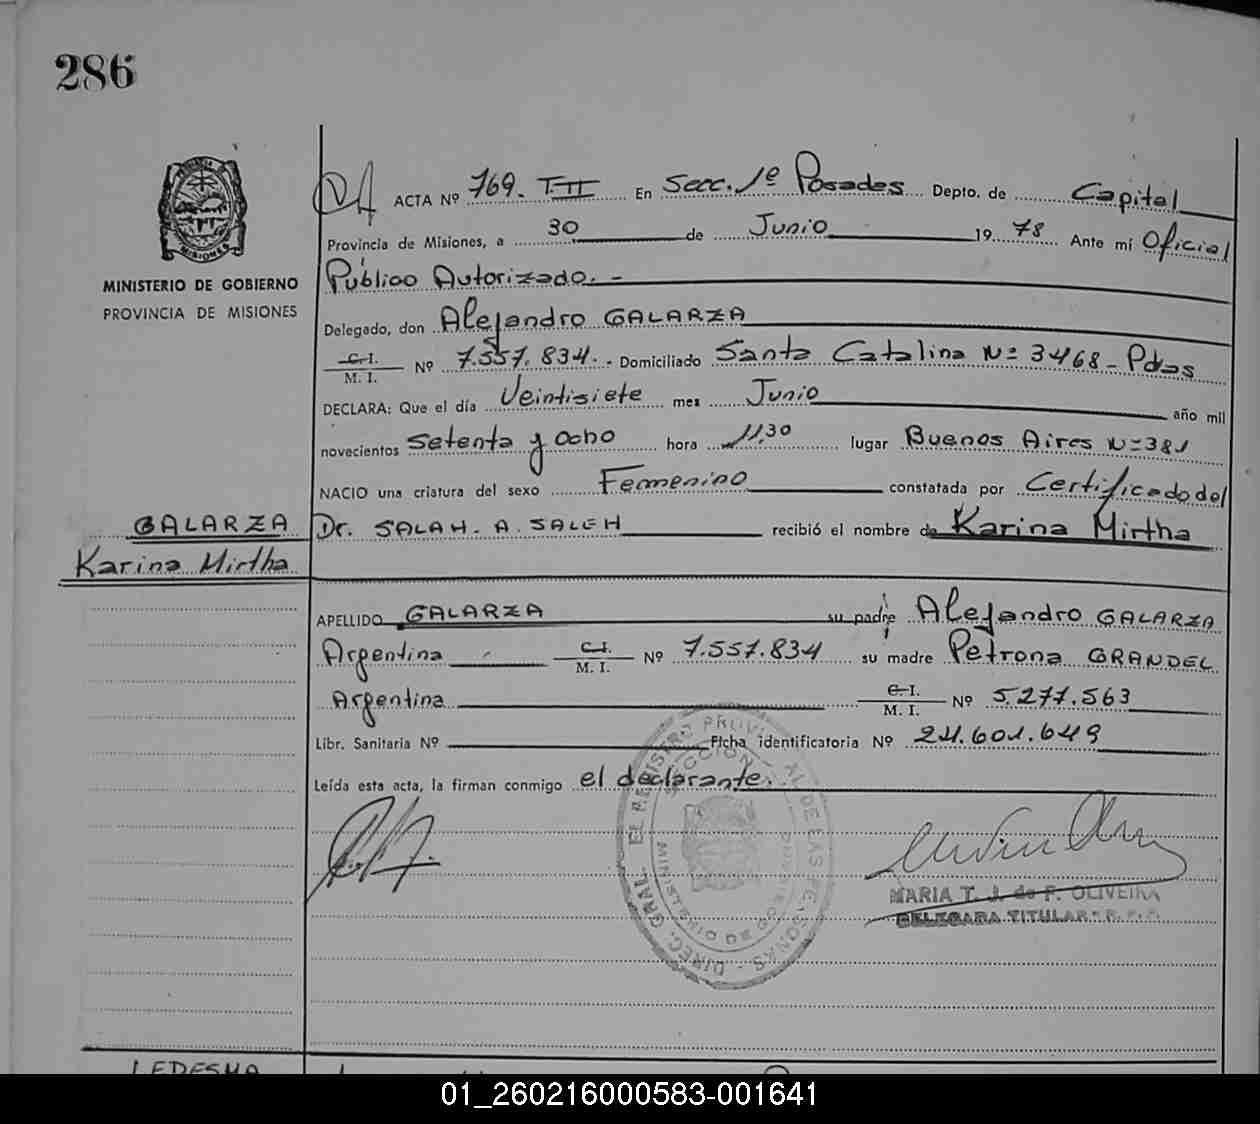 286
ACTA Nº 769. T-II En Secc. 1º Posadas Depto. de Capital
Provincia de Misiones, a 30 de Junio 1978 Ante mí Oficial
Público Autorizado. -
MINISTERIO DE GOBIERNO
PROVINCIA DE MISIONES
Delegado, don Alejandro GALARZA
C. I.
M. I. Nº 7.557.834.- Domiciliado Santa Catalina Nº 3468- Pdas
DECLARA: Que el día Veintisiete mes Junio año mil
novecientos Setenta y Ocho hora 11,30 lugar Buenos Aires Nº 381
NACIO una criatura del sexo Femenino constatada por Certificado del
GALARZA
Karina Mirtha
Dr. SALAH. A. SALEH recibió el nombre de Karina Mirtha
APELLIDO GALARZA su padre Alejandro GALARZA
Argentina C. I. M. I. Nº 7.557.834 su madre Petrona GRANDEL
Argentina C. I. M. I. Nº 5.277.563
Libr. Sanitaria Nº Ficha identificatoria Nº 24.601.649
Leída esta acta, la firman conmigo el declarante.
MARIA T. J. de F. OLIVEIRA
DELEGADA TITULAR
LEDESMA
01_260216000583-001641